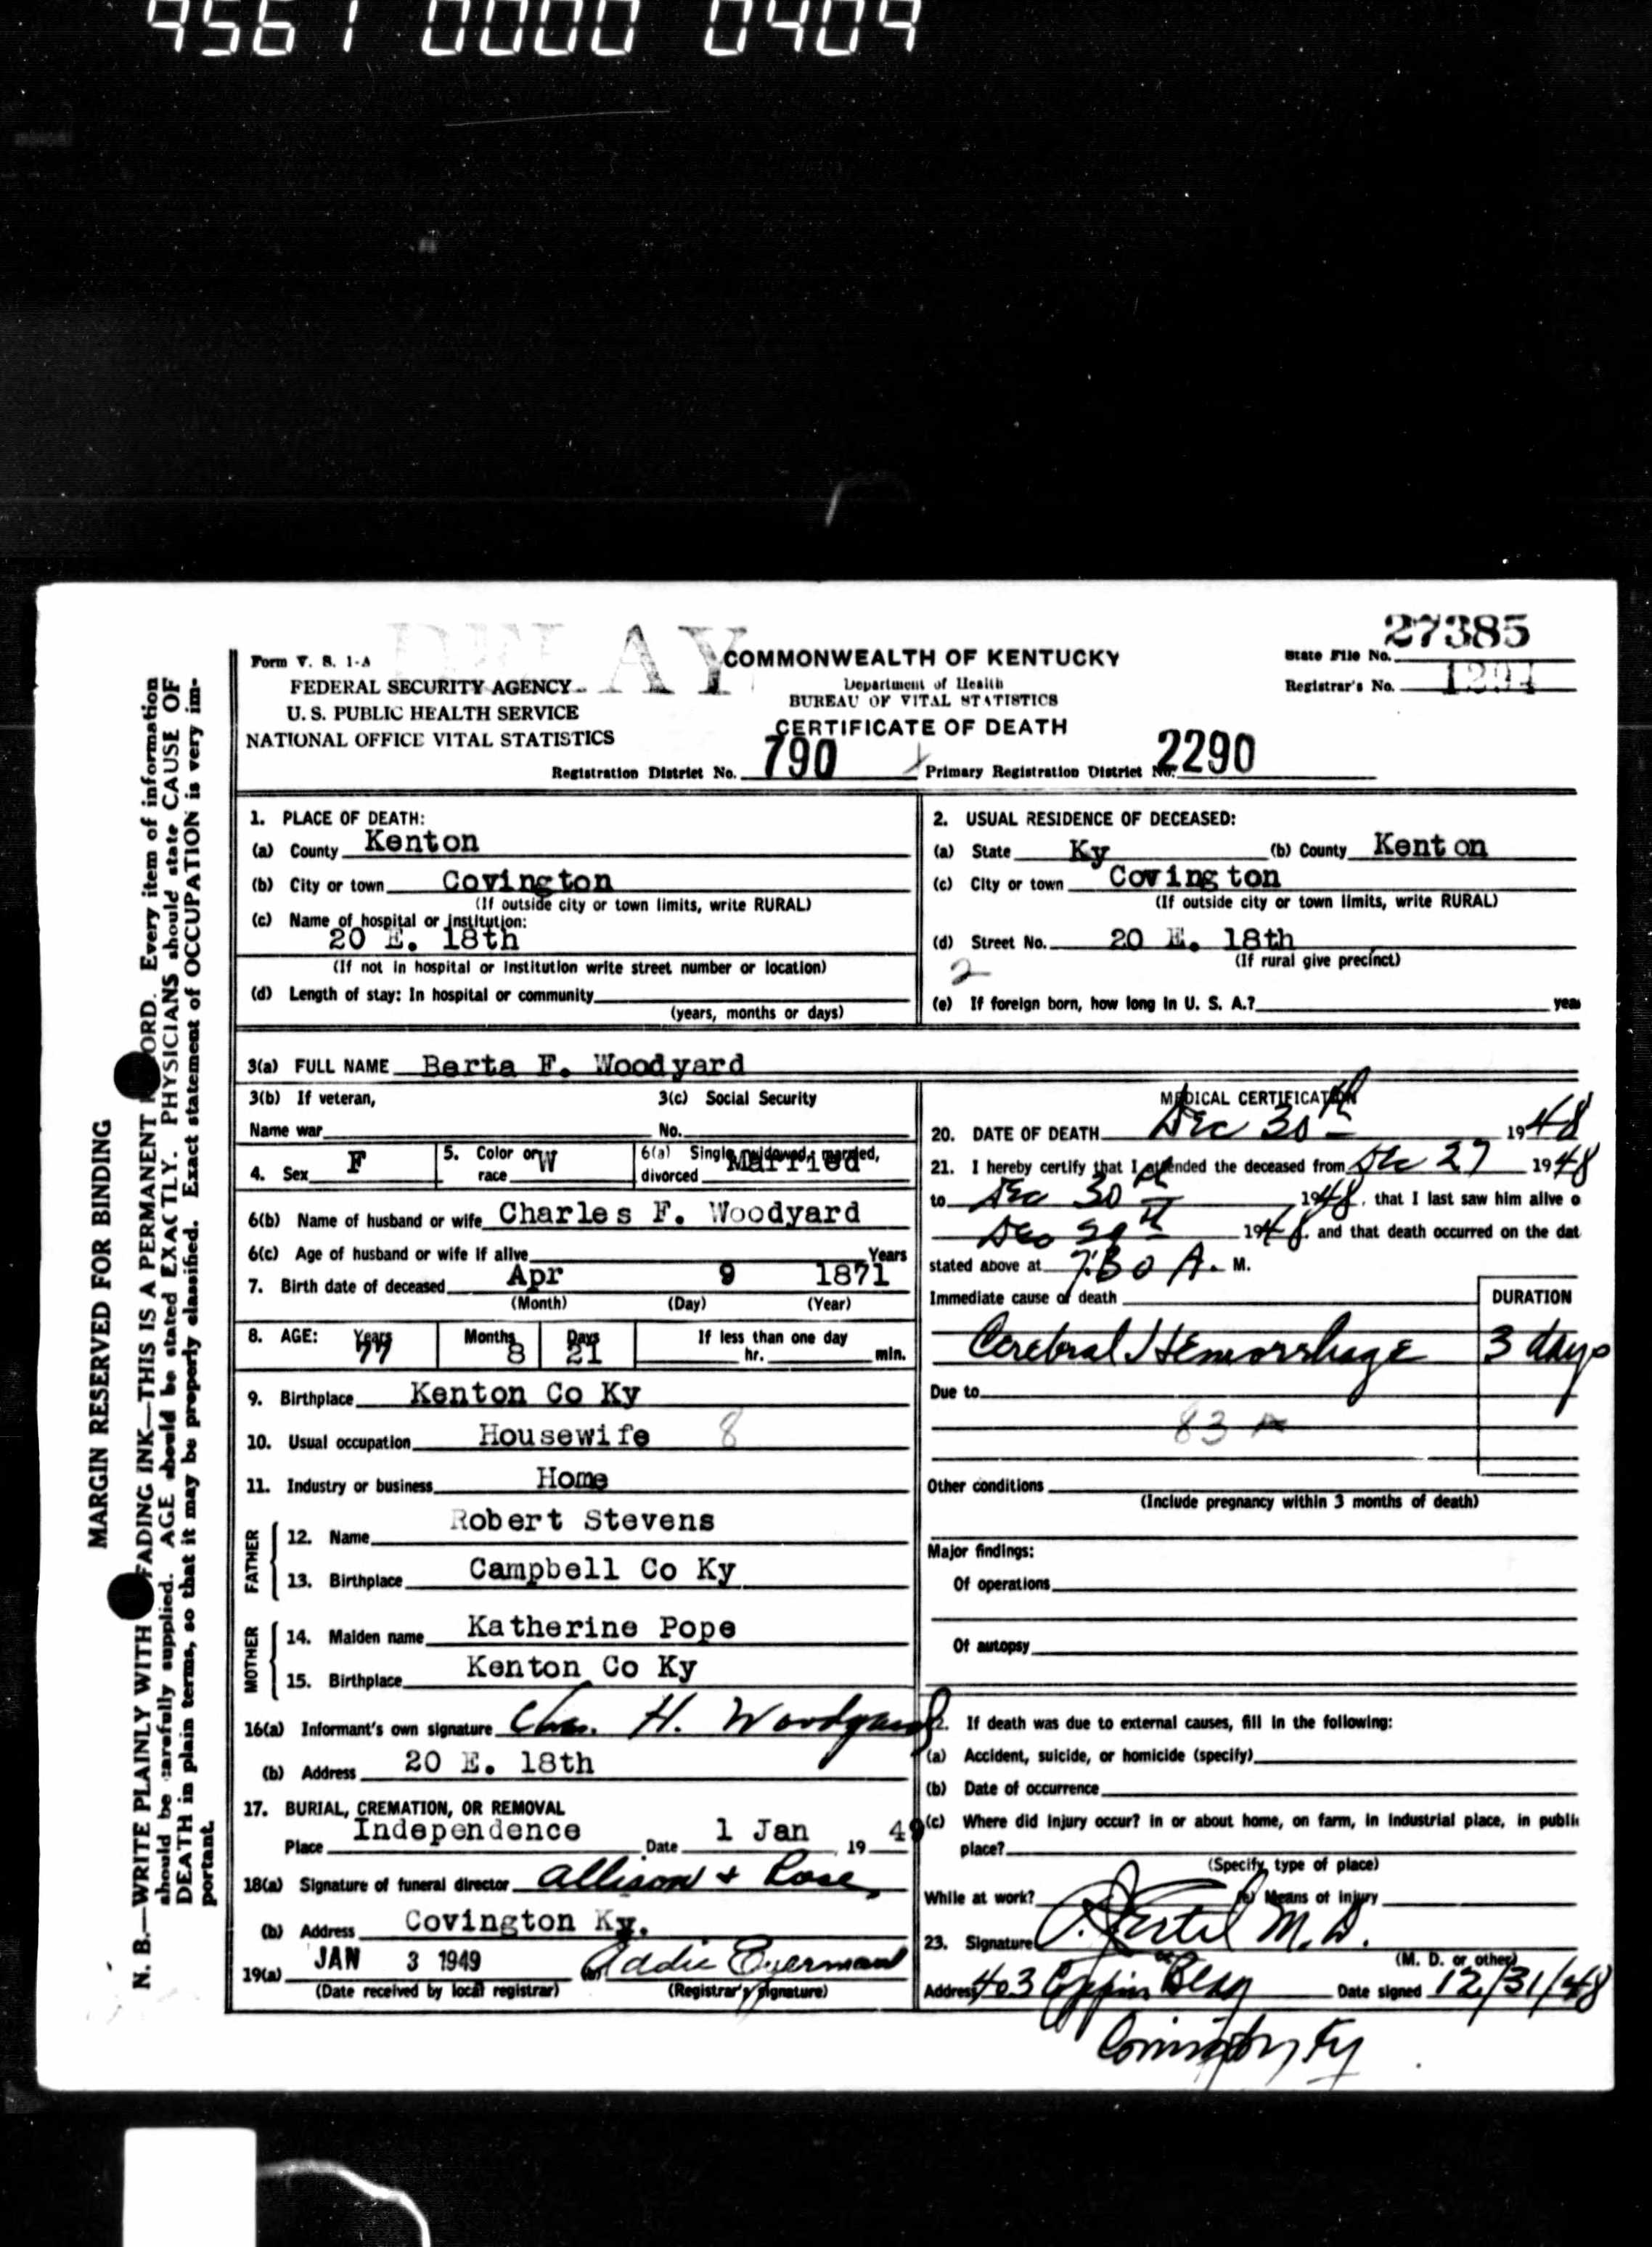 9561 0000 0409
DELAY
27385
Form V. S. 1-A
COMMONWEALTH OF KENTUCKY
State File No.
FEDERAL SECURITY AGENCY
Department of Health
Registrar's No.
U. S. PUBLIC HEALTH SERVICE
BUREAU OF VITAL STATISTICS
NATIONAL OFFICE VITAL STATISTICS
CERTIFICATE OF DEATH
Registration District No. 790 Primary Registration District No. 2290
MARGIN RESERVED FOR BINDING
N. B.—WRITE PLAINLY WITH FADING INK—THIS IS A PERMANENT ORD. Every item of information
should be carefully supplied. AGE should be stated EXACTLY. PHYSICIANS should state CAUSE OF
DEATH in plain terms, so that it may be properly classified. Exact statement of OCCUPATION is very im-
portant.
1. PLACE OF DEATH:
(a) County Kenton
(b) City or town Covington
(If outside city or town limits, write RURAL)
(c) Name of hospital or institution:
20 E. 18th
(If not in hospital or institution write street number or location)
(d) Length of stay: In hospital or community
(years, months or days)
2. USUAL RESIDENCE OF DECEASED:
(a) State Ky (b) County Kenton
(c) City or town Covington
(If outside city or town limits, write RURAL)
(d) Street No. 20 E. 18th
(If rural give precinct)
2
(e) If foreign born, how long in U. S. A.? yea
3(a) FULL NAME Berta F. Woodyard
3(b) If veteran, 3(c) Social Security
Name war No.
4. Sex F 5. Color or race W 6(a) Single, widowed, married, divorced Married
6(b) Name of husband or wife Charles F. Woodyard
6(c) Age of husband or wife if alive Years
7. Birth date of deceased Apr 9 1871
(Month) (Day) (Year)
8. AGE: Years 77 Months 8 Days 21 If less than one day
hr. min.
9. Birthplace Kenton Co Ky
10. Usual occupation Housewife 8
11. Industry or business Home
FATHER
12. Name Robert Stevens
13. Birthplace Campbell Co Ky
MOTHER
14. Maiden name Katherine Pope
15. Birthplace Kenton Co Ky
16(a) Informant's own signature Chas. H. Woodyard
(b) Address 20 E. 18th
17. BURIAL, CREMATION, OR REMOVAL
Place Independence Date 1 Jan 19 49
18(a) Signature of funeral director Allison + Rose
(b) Address Covington Ky.
19(a) JAN 3 1949 (b) Addie Everman
(Date received by local registrar) (Registrar's signature)
MEDICAL CERTIFICATION
20. DATE OF DEATH Dec 30th 1948
21. I hereby certify that I attended the deceased from Dec 27 1948
to Dec 30th 1948, that I last saw him alive o
Dec 29th 1948, and that death occurred on the dat
stated above at 7:30 A. M.
Immediate cause of death DURATION
Cerebral Hemorrhage 3 days
Due to
83 A
Other conditions
(Include pregnancy within 3 months of death)
Major findings:
Of operations
Of autopsy
2. If death was due to external causes, fill in the following:
(a) Accident, suicide, or homicide (specify)
(b) Date of occurrence
(c) Where did injury occur? In or about home, on farm, in industrial place, in public
place?
(Specify type of place)
While at work? (e) Means of injury
23. Signature M.D.
(M. D. or other)
Address 403 Coppin Bldg Date signed 12/31/48
Covington Ky